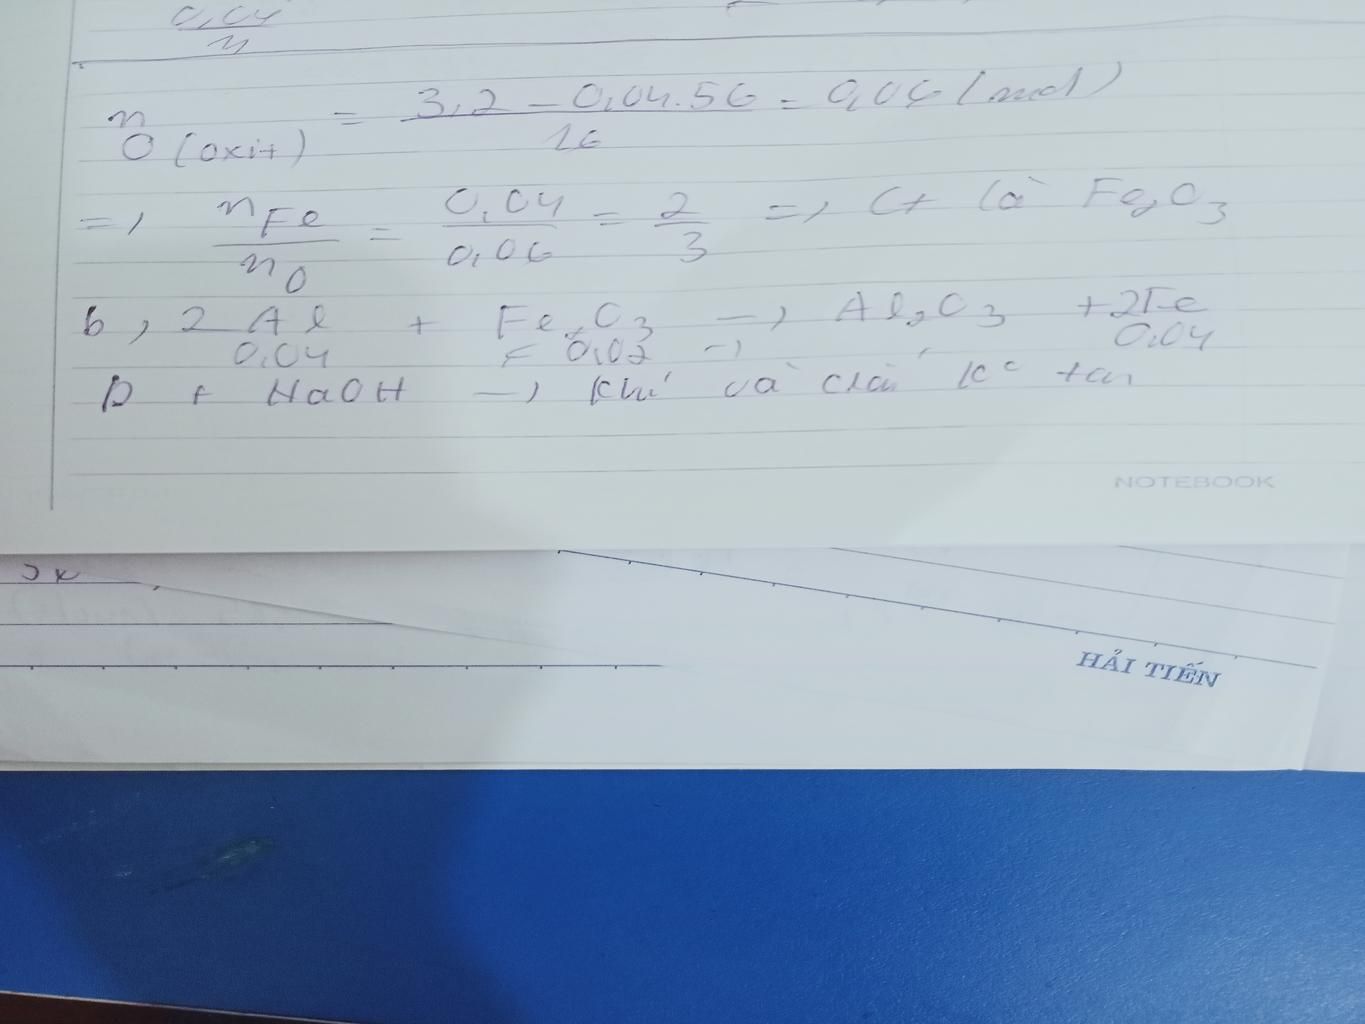 0,04
n
n O (oxit) = 3,2 - 0,04.56 / 16 = 0,06 (mol)
=> nFe / nO = 0,04 / 0,06 = 2 / 3 => Ct là Fe2O3
b, 2Al + Fe2O3 -> Al2O3 + 2Fe
0,04 < 0,02 -> 0,04
D + NaOH -> Khí và chất ko tan
NOTEBOOK
HẢI TIẾN